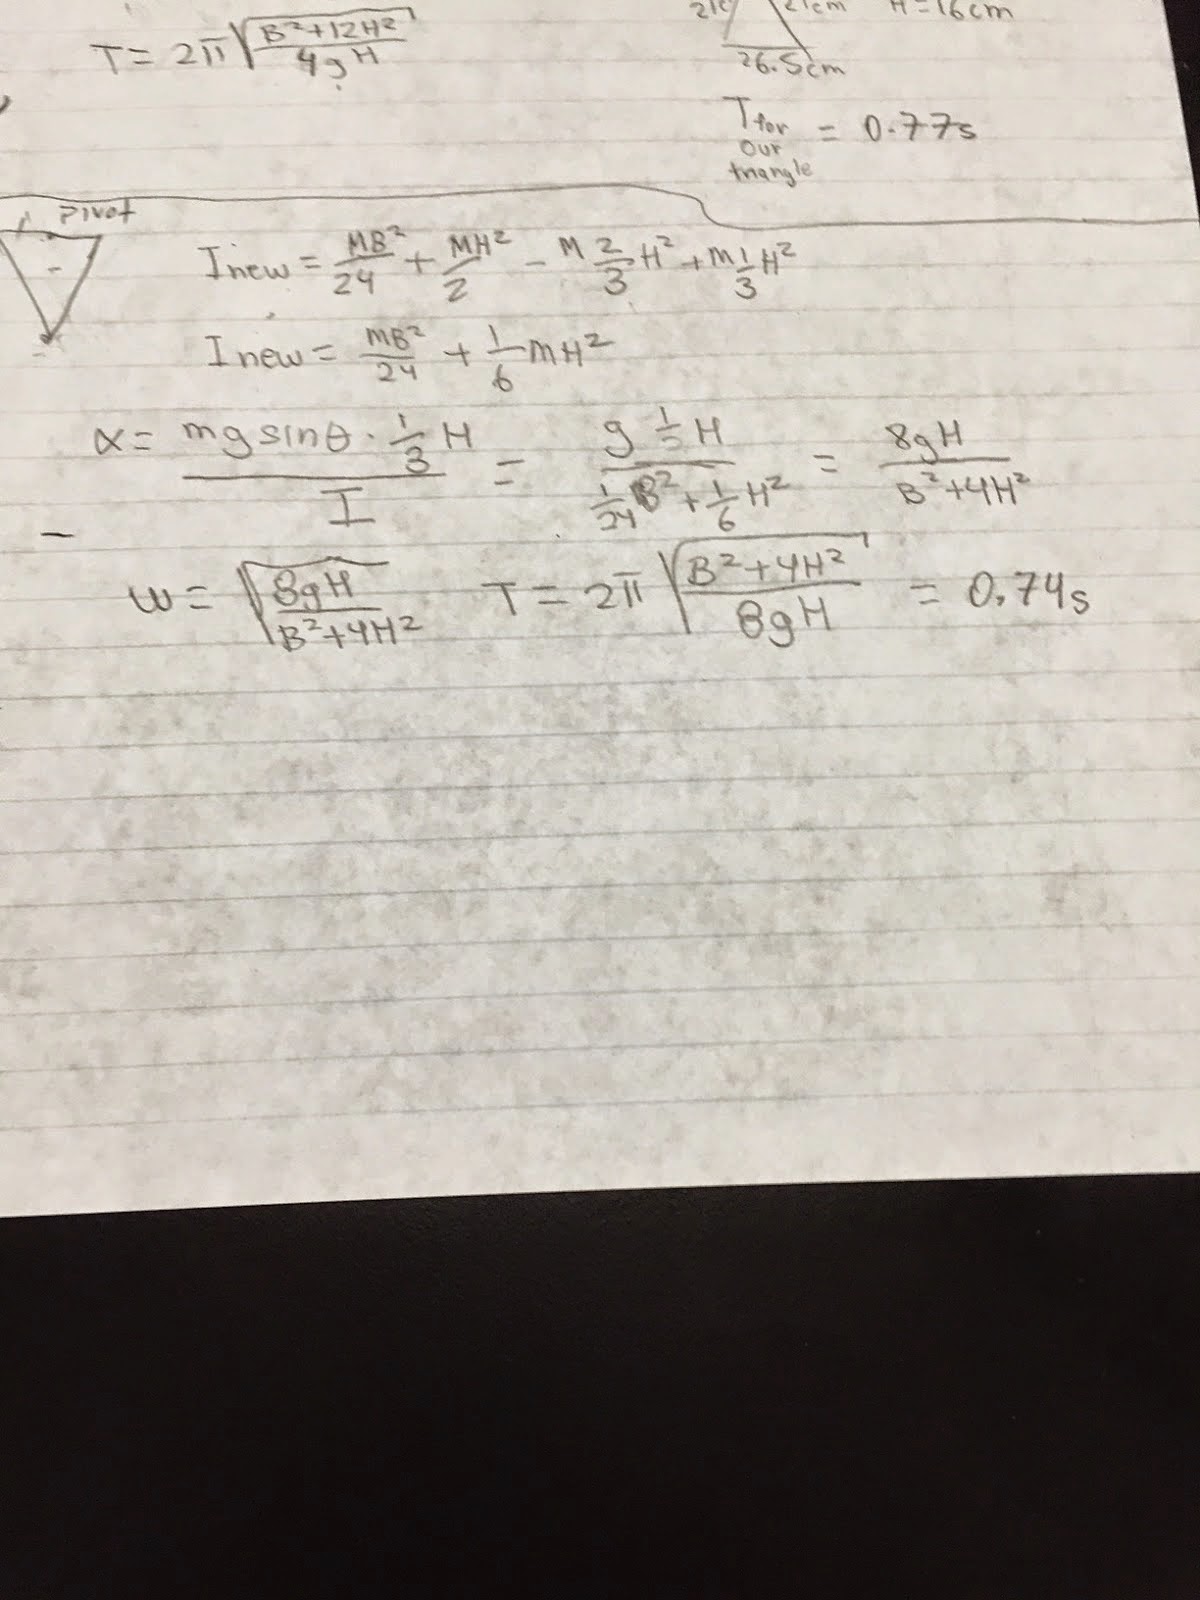 T = 2π√((B²+12H²)/(4gH))
21cm H=16cm
26.5cm
T for our triangle = 0.77s
Pivot
Inew = MB²/24 + MH²/2 - M 2/3 H² + M 1/3 H²
Inew = MB²/24 + 1/6 MH²
α = (mg sinθ · 1/3 H)/I = (g 1/ H)/(1/24 B² + 1/6 H²) = 8gH/(B²+4H²)
ω = √(8gH/(B²+4H²)) T = 2π√((B²+4H²)/(8gH)) = 0.74s